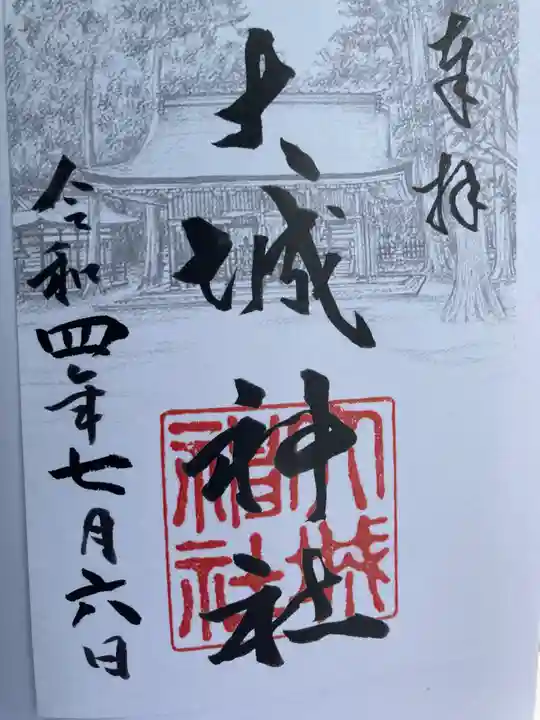 奉拝
大城神社
令和四年七月六日
大城
神社